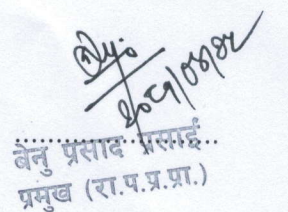 २०८१/०४/१८
..............................
बेनु प्रसाद प्रसाई
प्रमुख (रा.प.प्र.प्रा.)